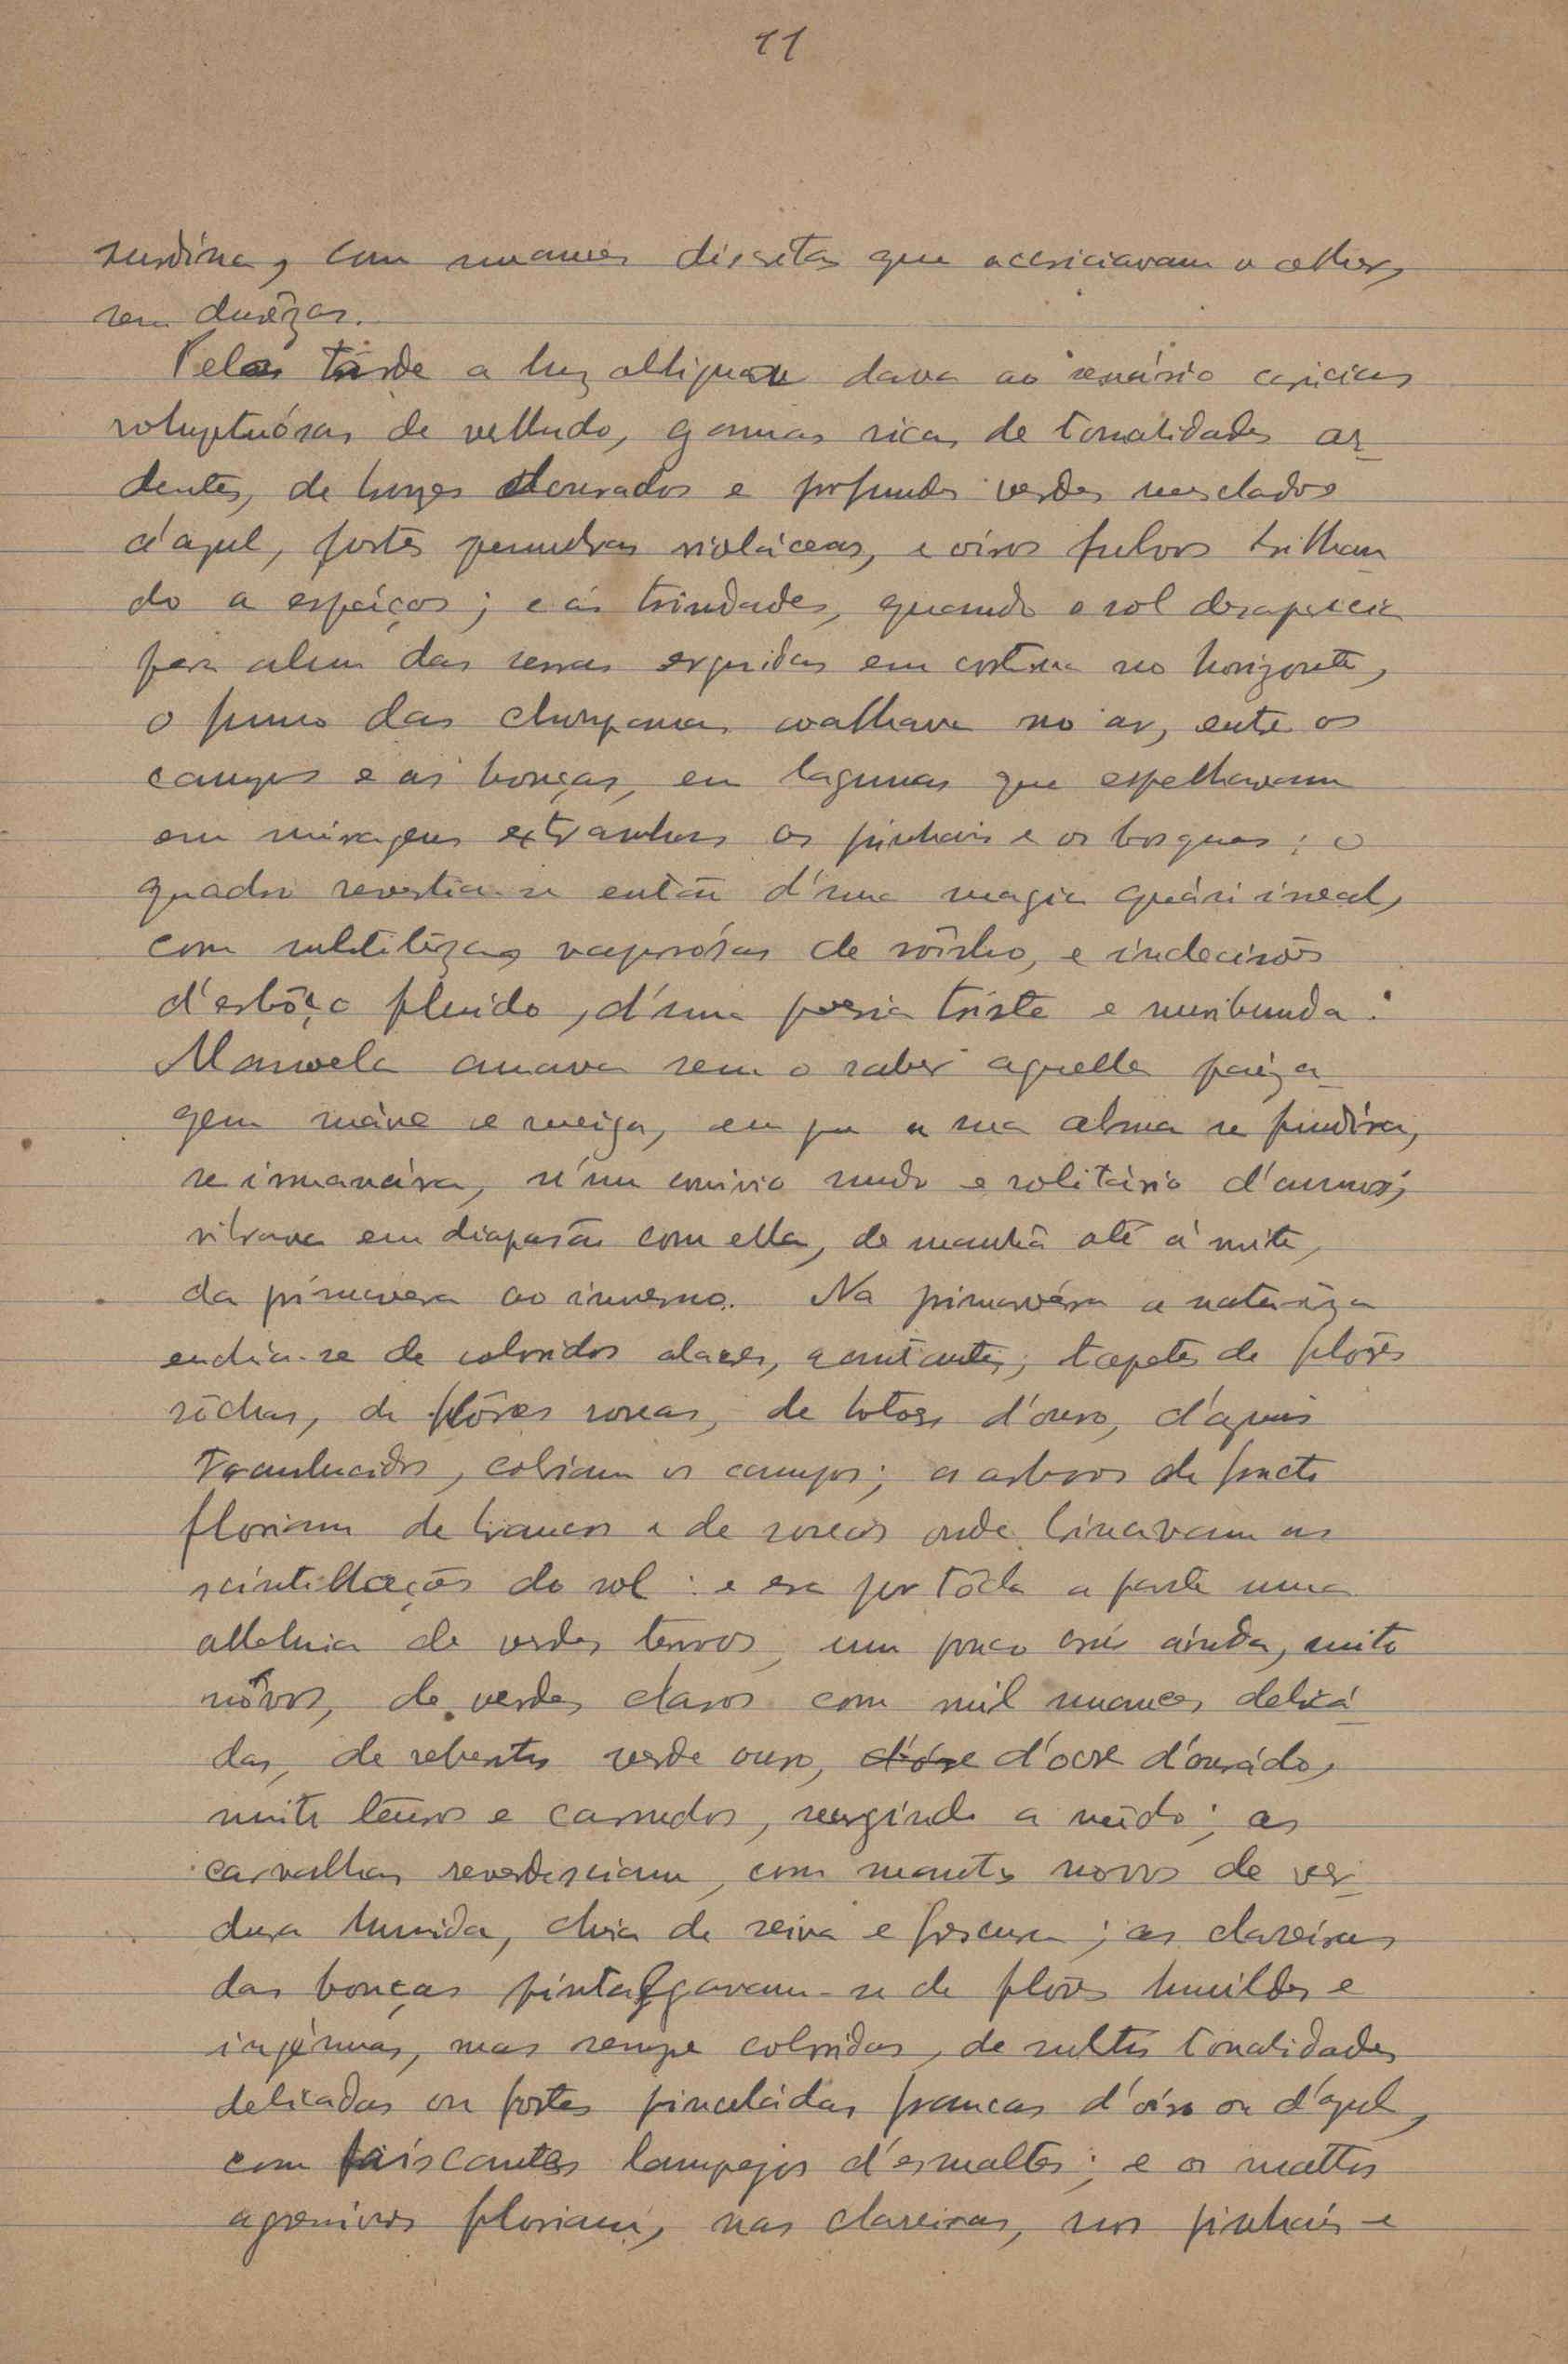 11
surdina, com nuances discretas que acariciavam o olhar,
sem durêzas.
Pela tarde a luz obliqua dava ao scenário caricias
voluptuósas de velludo, gammas ricas de tonalidades ar-
dentes, de longes dourados e profundos verdes mesclados
d'azul, fortes penumbras violáceas, e oiros fulvos brilhan
do a espáiços; e ás trindades, quando o sol desaparecia
para alem das serras erguidas em cortina no horizonte,
o fumo das choupanas coalhava no ar, entre os
campos e as bouças, em lagunas que espelhavam
em miragens extranhas os pinhais e os bosques: o
quadro revestia-se então d'uma magia quási irreal,
com subtilêzas vaporósas de sônho, e indecisões
d'esbôço fluido, d'uma poesia triste e muribunda.
Manoela amava sem o saber aquella paiza-
gem suáve e meiga, em que a sua alma se fundira,
se irmanára, n'um convivio mudo e solitário d'annos;
vibrava em diapasão com ella, de manhã até á noite,
da primavera ao inverno. Na primavéra a naturêza
enchia-se de coloridos alacres, cantantes; tapetes de flôres
rôchas, de flôres roseas, de botoes d'ouro, d'azuis
translucidos, cobriam os campos; as arbores de fructo
floriam de brancos e de roseos onde brincavam as
scintillações do sol: e era por tôda a parte uma
alleluia de verdes tenros, um pouco crús ainda, muito
nôvos, de verdes claros com mil nuances delicá-
das, de rebentos verde ouro, d'ocre d'ourádo,
muito tênros e carnudos, surgindo a mêdo; as
carvalhas reverdesciam, com mantos novos de ver-
dura humida, cheia de seiva e frescura; as clareiras
das bouças pintalgavam-se de flôres humildes e
ingénuas, mas sempe coloridas, de subtis tonalidades
delicadas ou fortes pinceládas francas d'oiro ou d'azul,
com faíscantes lampejos d'esmaltes; e os mattos
agrenivos floriam, nas clareiras, nos pinhais e